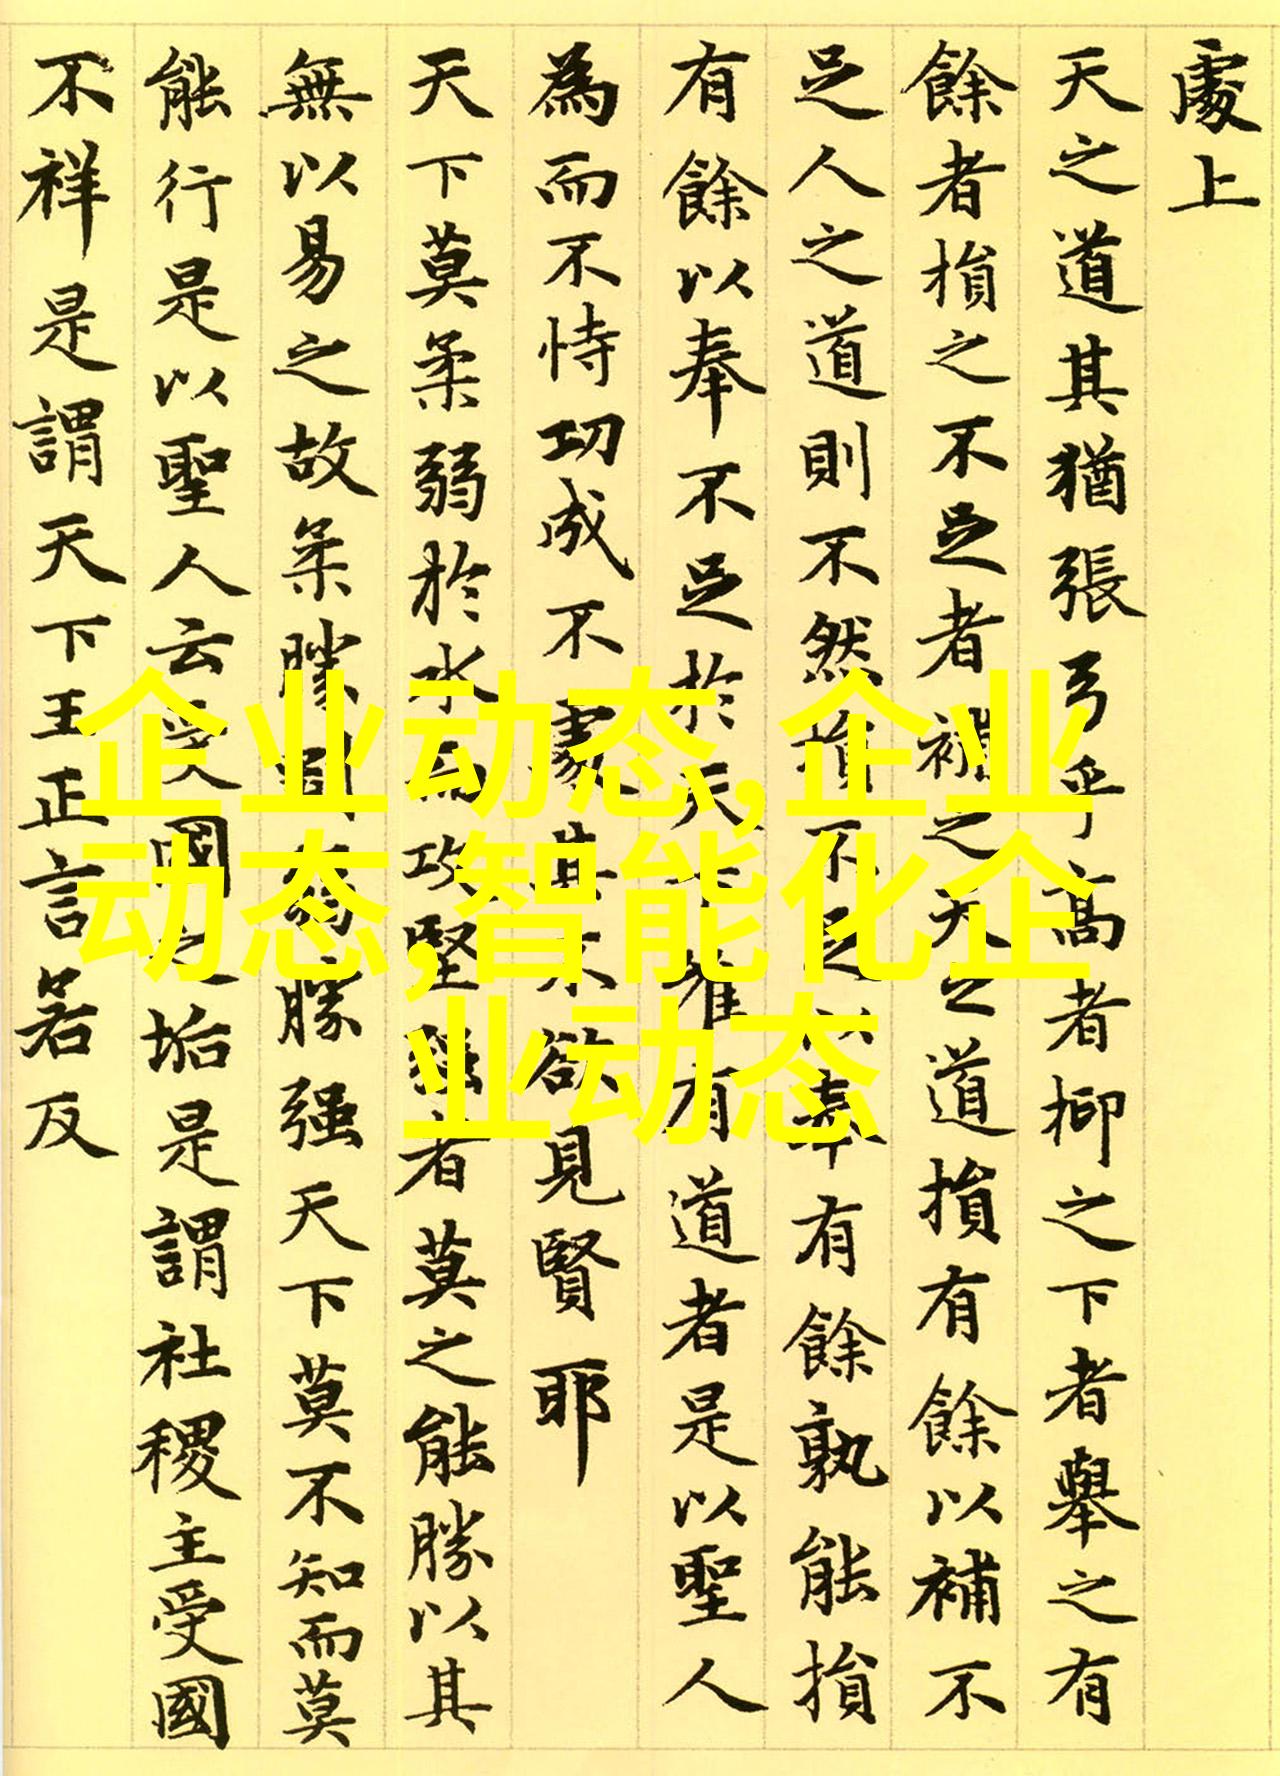 處上
天之道其猶張弓乎高者抑之下者舉之有
餘者損之不足者補之天之道損有餘以補不
足人之道則不然損不足以奉有餘孰能損
有餘以奉不足於天下唯有道者是以聖人
為而不恃功成不處其不欲見賢耶
天下莫柔弱於水而攻堅強者莫之能勝以其
無以易之故柔勝剛弱勝强天下莫不知而莫
能行是以聖人云受國之垢是謂社稷主受國
不祥是謂天下王正言若反
企业动态,企业
动态,智能化企
业动态